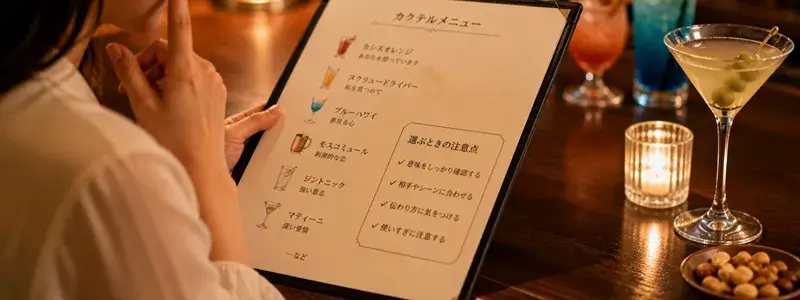 カクテルメニュー
カシスオレンジ
あなたを想っています
スクリュードライバー
ブルーハワイ
夢見る心
モスコミュール
刺激的な恋
ジントニック
強い意志
マティーニ
深い愛情
…など
選ぶときの注意点
✓ 意味をしっかり確認する
✓ 相手やシーンに合わせる
✓ 伝わり方に気をつける
✓ 使いすぎに注意する